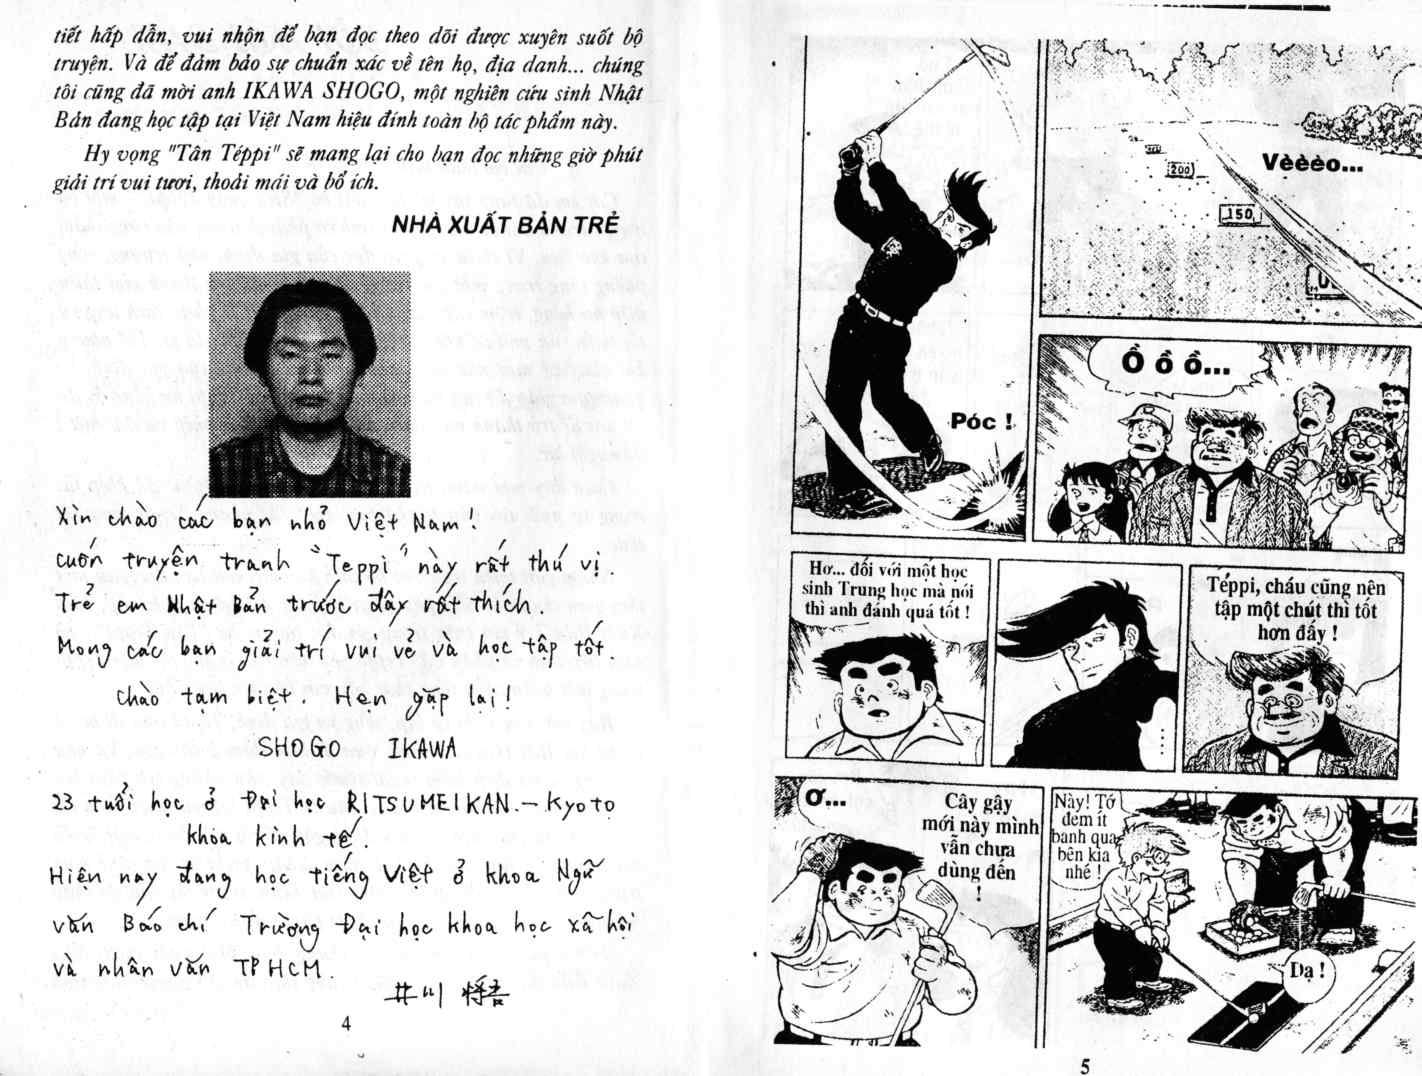 tiết hấp dẫn, vui nhộn để bạn đọc theo dõi được xuyên suốt bộ
truyện. Và để đảm bảo sự chuẩn xác về tên họ, địa danh... chúng
tôi cũng đã mời anh IKAWA SHOGO, một nghiên cứu sinh Nhật
Bản đang học tập tại Việt Nam hiệu đính toàn bộ tác phẩm này.
Hy vọng "Tân Téppi" sẽ mang lại cho bạn đọc những giờ phút
giải trí vui tươi, thoải mái và bổ ích.
NHÀ XUẤT BẢN TRẺ
Xin chào các bạn nhỏ Việt Nam!
cuốn truyện tranh "Teppi" này rất thú vị
Trẻ em Nhật Bản trước đây rất thích.
Mong các bạn giải trí vui vẻ và học tập tốt.
chào tạm biệt. Hẹn gặp lại!
SHOGO IKAWA
23 tuổi học ở Đại học RITSUMEIKAN.-Kyoto
khoa kinh tế.
Hiện nay đang học tiếng Việt ở khoa Ngữ
văn Báo chí Trường Đại học khoa học xã hội
và nhân văn TP HCM.
井川 将吾
4
Vèèèo...
200
150
Póc !
Ồ ồ ồ...
Hơ... đối với một học
sinh Trung học mà nói
thì anh đánh quá tốt !
....
Téppi, cháu cũng nên
tập một chút thì tốt
hơn đấy !
Ơ...
Cây gậy
mới này mình
vẫn chưa
dùng đến
!
Này! Tớ
đem ít
banh qua
bên kia
nhé !
Dạ !
5